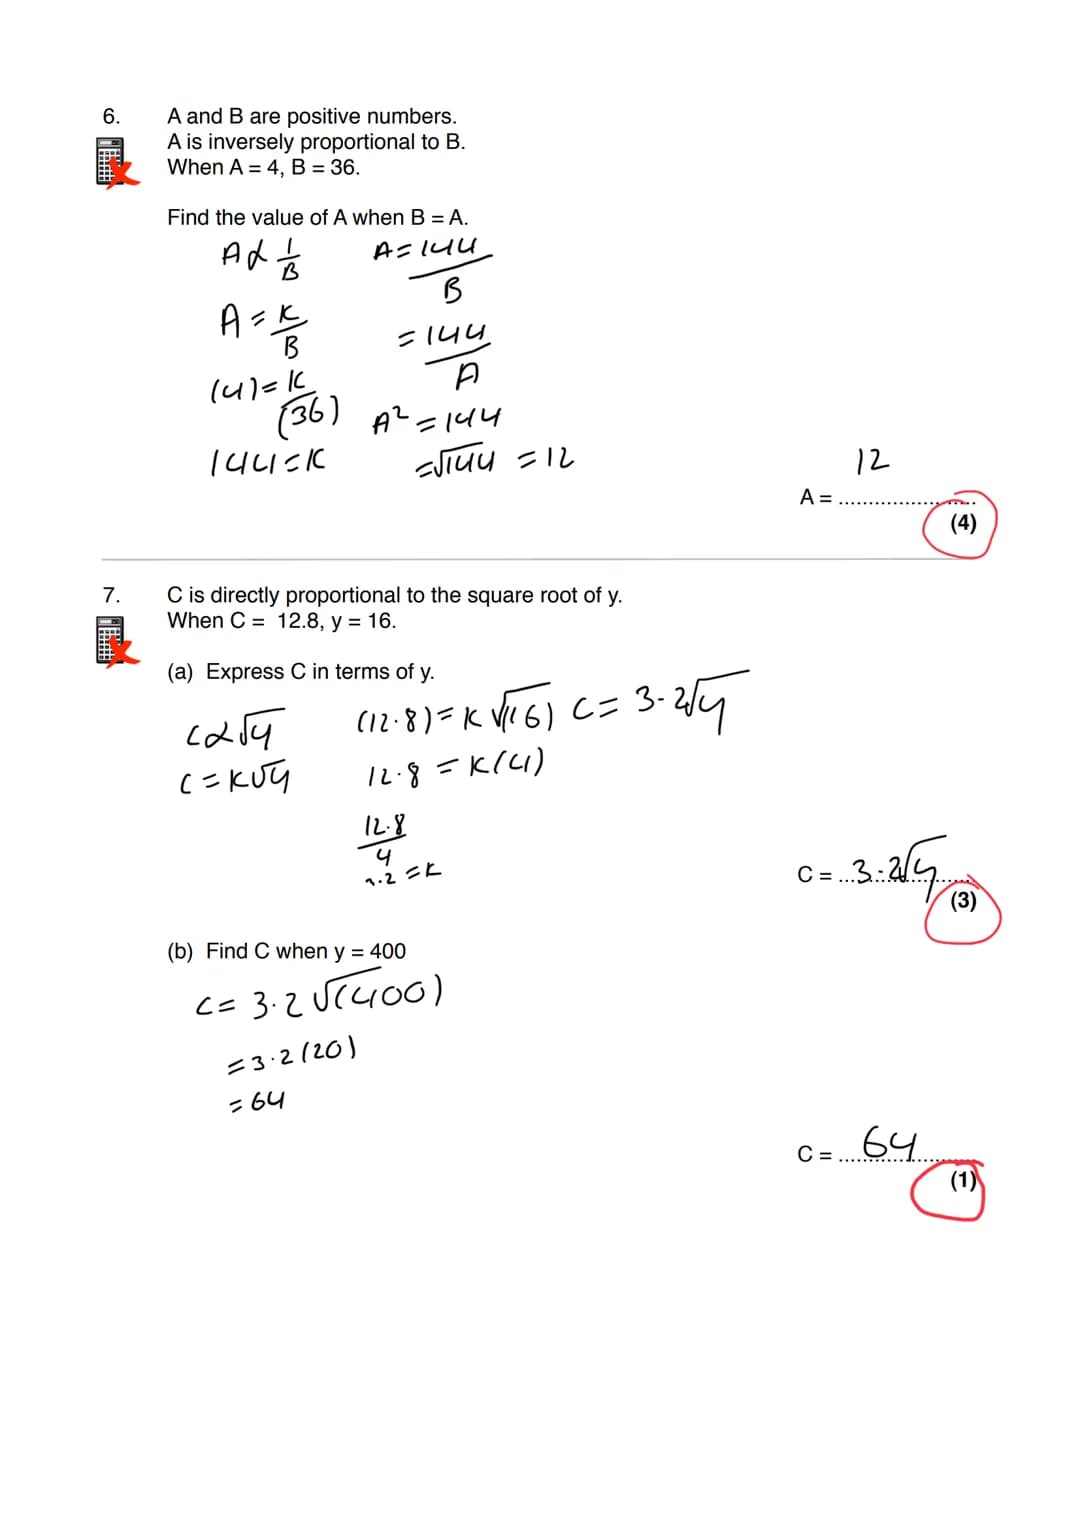 6. A and B are positive numbers.
A is inversely proportional to B.
When A = 4, B = 36.
Find the value of A when B = A.
A ∝ 1/B
A = K/B
(4) = K/(36)
144 = K
A = 144/B
= 144/A
A² = 144
= √144 = 12
12
A = ........................
(4)
7. C is directly proportional to the square root of y.
When C = 12.8, y = 16.
(a) Express C in terms of y.
C ∝ √y
C = K√y
(12.8) = K √(16)
12.8 = K(4)
12.8/4
3.2 = K
C = 3.2√y
C = ...3.2√y......
(3)
(b) Find C when y = 400
C = 3.2 √(400)
= 3.2 (20)
= 64
C = ....64........
(1)